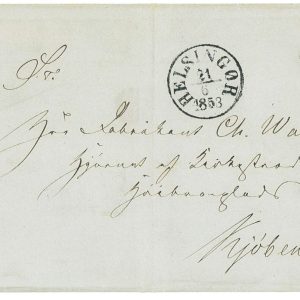 HELSINGØR
21
6
1853
S.r
Herr Fabrikant Ch. Wa
Hjørnet af Kirkestræd
Høibroplads
Kjøben